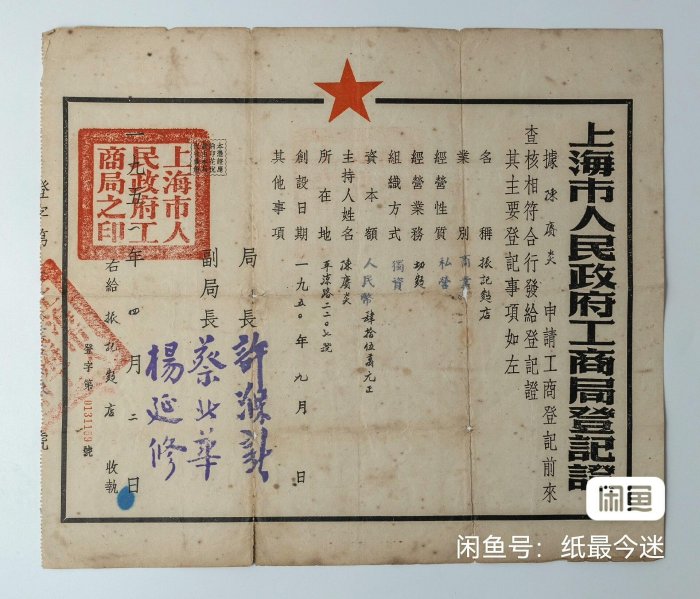 上海市人民政府工商局登記證
據陳廣炎申請工商登記前來
查核相符合行發給登記證
其主要登記事項如左
名稱 振記麵店
業別 商業
經營性質 私營
經營業務 切麵
組織方式 獨資
資本額 人民幣肆拾伍萬元正
主持人姓名 陳廣炎
所在地 平涼路二二〇三號
創設日期 一九五〇年九月 日
其他事項
局長 許滌新
副局長 蔡北華
楊延修
上海市人
民政府工
商局之印
一九五一年四月二日
右給振記麵店收執
登字第0131109號
登字第
號
闲鱼
闲鱼号：纸最今迷